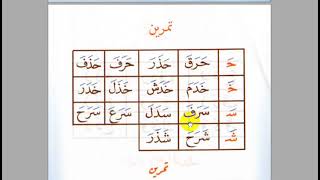 تمرين
حَـ حَرَقَ حَذَرَ حَرَفَ حَذَفَ
خَـ خَدَمَ خَدَشَ خَذَلَ خَدَرَ
سَـ سَرَفَ سَدَلَ سَرَعَ سَرَحَ
شَـ شَرَحَ شَذَرَ
تمرين